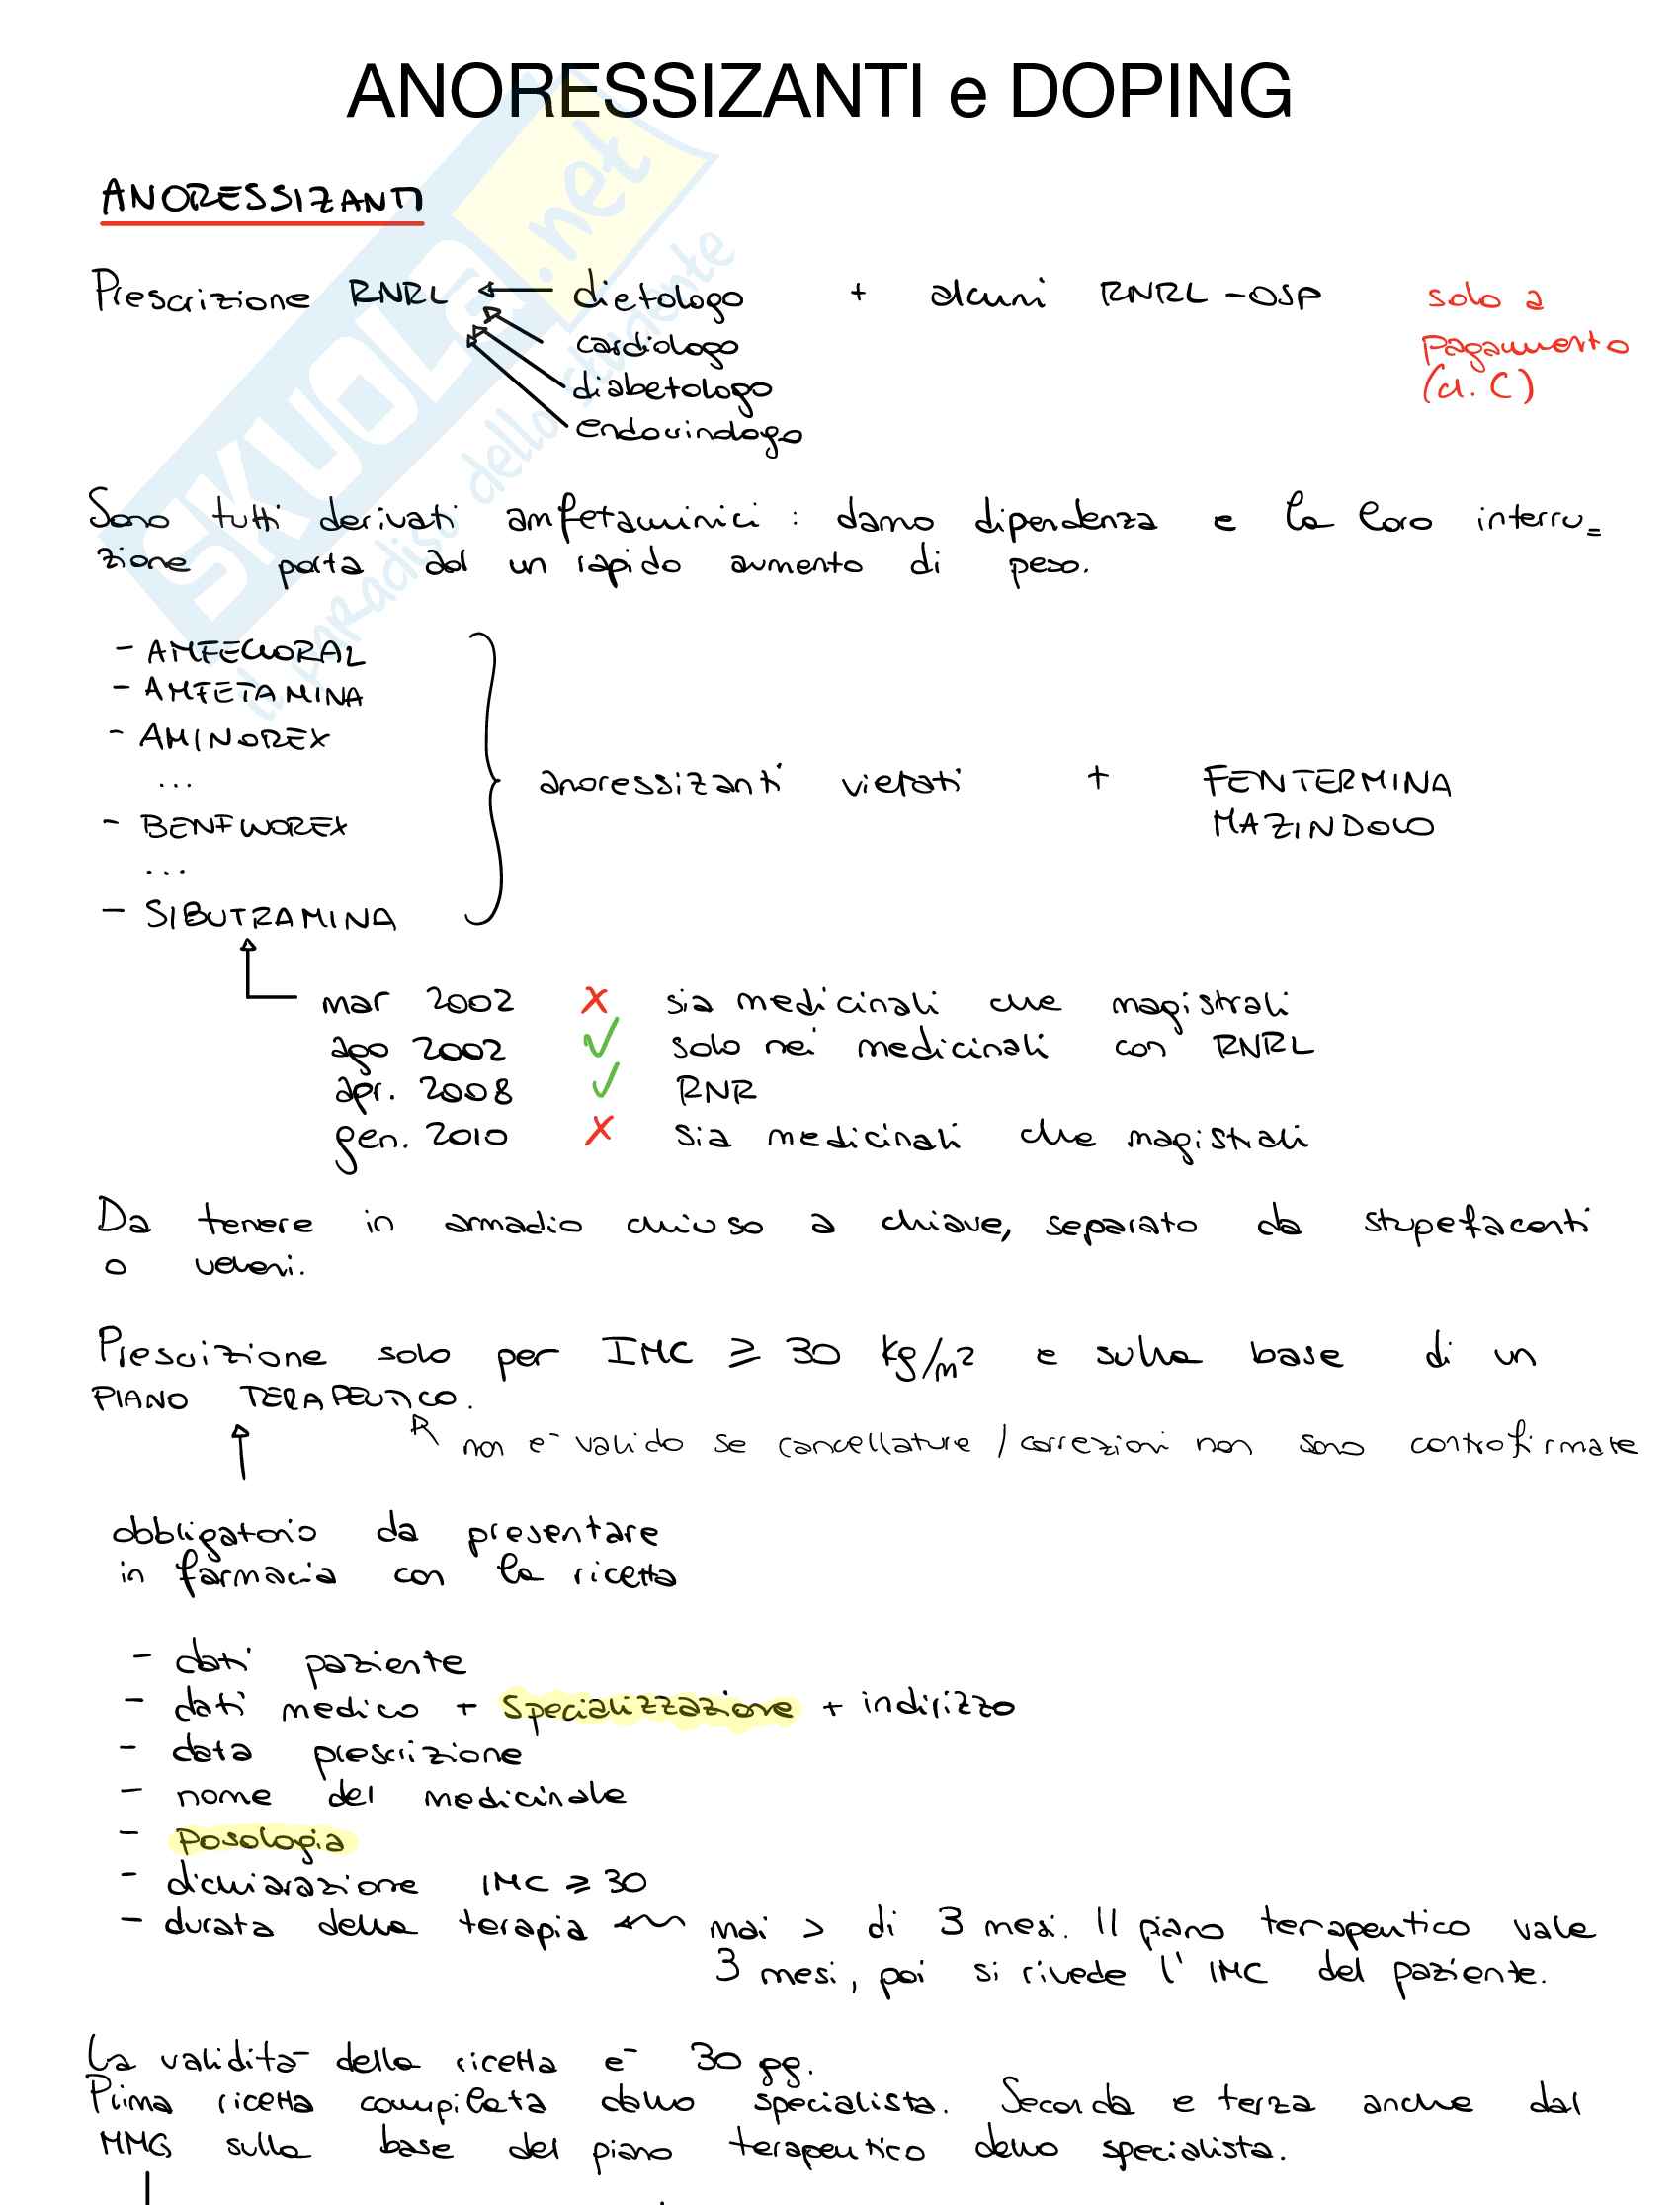 ANORESSIZANTI e DOPING
ANORESSIZANTI
Prescrizione RNRL ← dietologo + alcuni RNRL-OSP solo a
cardiologo pagamento
diabetologo (cl. C)
endocrinologo
Sono tutti derivati amfetaminici : danno dipendenza e la loro interru=
zione porta ad un rapido aumento di peso.
- AMFECLORAL
- AMFETAMINA
- AMINOREX
...
anoressizanti vietati + FENTERMINA
MAZINDOLO
- BENFLUOREX
...
- SIBUTRAMINA
mar 2002 ✗ sia medicinali che magistrali
ago 2002 ✓ solo nei medicinali con RNRL
apr. 2008 ✓ RNR
gen. 2010 ✗ sia medicinali che magistrali
Da tenere in armadio chiuso a chiave, separato da stupefacenti
o veleni.
Prescrizione solo per IMC ≥ 30 kg/m² e sulla base di un
PIANO TERAPEUTICO.
non è valido se cancellature / correzioni non sono controfirmate
obbligatorio da presentare
in farmacia con la ricetta
- dati paziente
- dati medico + specializzazione + indirizzo
- data prescrizione
- nome del medicinale
- posologia
- dichiarazione IMC ≥ 30
- durata della terapia ← mai > di 3 mesi. Il piano terapeutico vale
3 mesi, poi si rivede l'IMC del paziente.
La validità della ricetta è 30 gg.
Prima ricetta compilata dallo specialista. Seconda e terza anche dal
MMG sulla base del piano terapeutico dello specialista.
SKUOLA.net
il paradiso dello studente